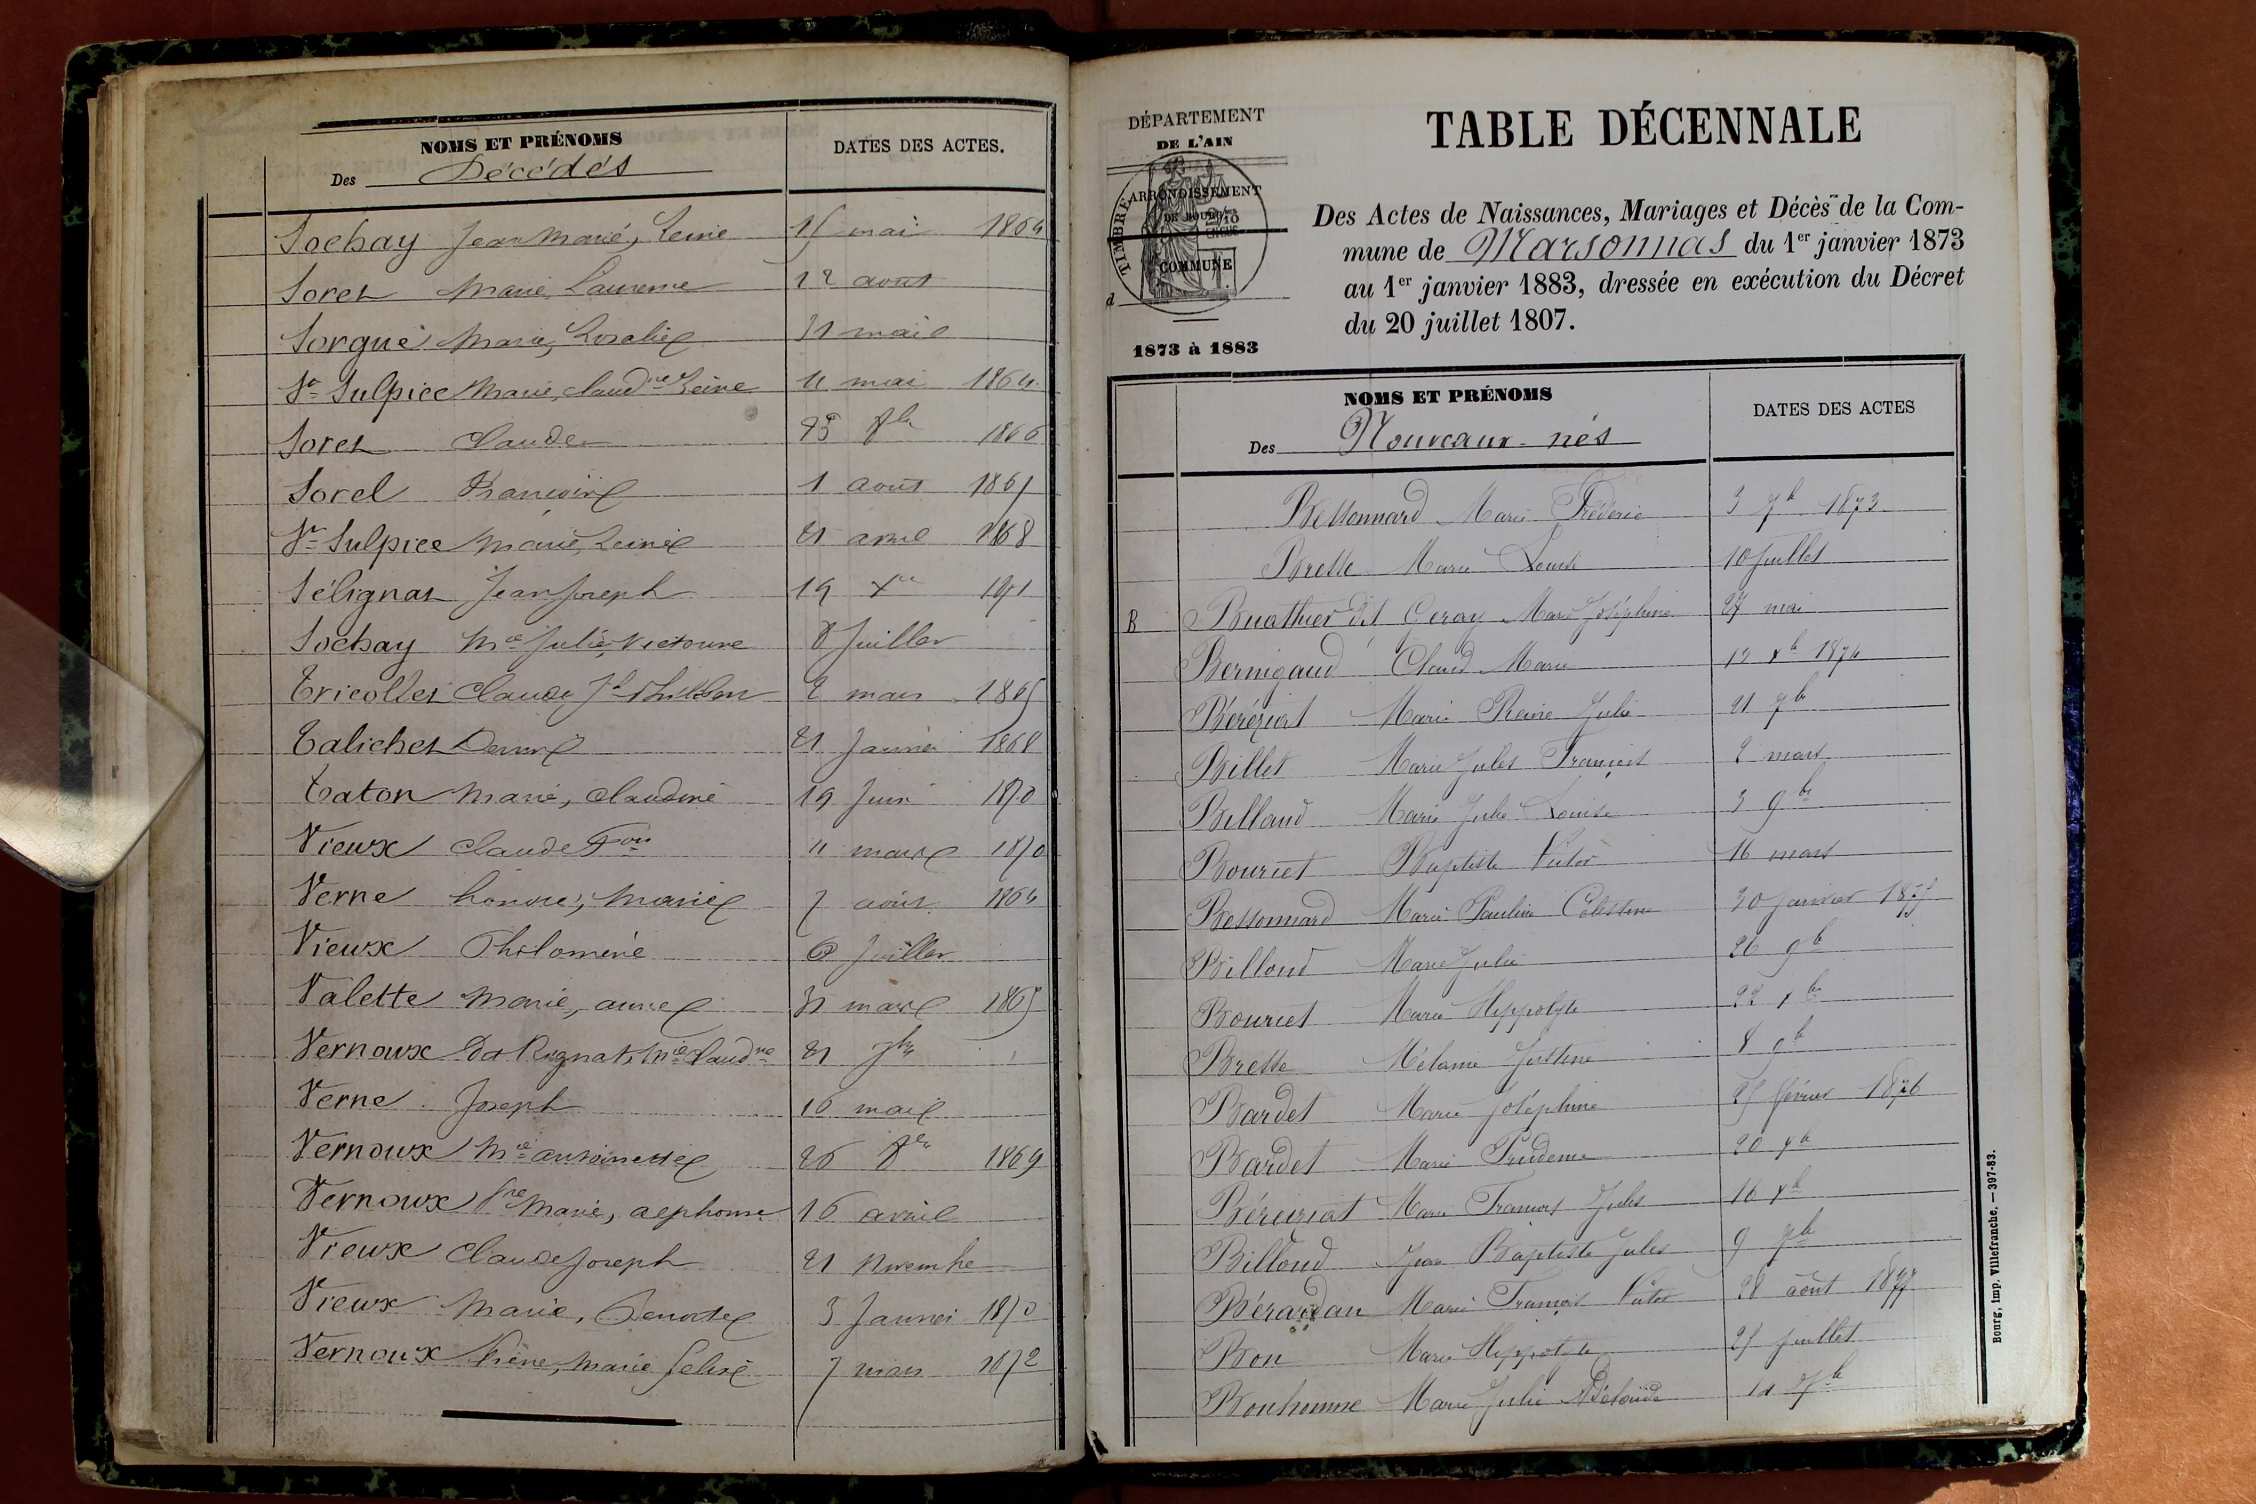 NOMS ET PRÉNOMS
Des Décédés
DATES DES ACTES.
Sochay Jean Marie, Reine 15 mai 1864
Soret Marie Laurence 12 août
Sorgue Marie, Rosalie 31 mai
St Sulpice Marie, Claudne Reine 11 mai 1864
Soret Claude 1866
Sorel Françoise 1 août 1865
St Sulpice Marie, Reine 21 avril 1868
Sélignat Jean Joseph 19 Xre 1871
Sochay Mie Julie Victorine 8 Juillet
Tricollet Claude 2 mars 1865
Talichet Denise 21 Janvier 1868
Taton Marie, Claudine 19 Juin 1870
Vieux Claude Fois 11 mars 1870
Verne honoré, Marie 7 août 1864
Vieux Philomène 6 Juillet
Valette Marie, anne 31 mars 1865
Vernoux Dit Rognat, Mie Claudne 21 7bre
Verne Joseph 16 mai
Vernoux Mie antoinette 26 8bre 1869
Vernoux Marie, alphonse 16 avril
Vieux Claude Joseph 21 Novembre
Vieux Marie, Benoite 3 Janvier 1870
Vernoux Irène, Marie Felise 7 mars 1872
DÉPARTEMENT
DE L'AIN
ARRONDISSEMENT
DE BOURG
TIMBRE
COMMUNE
d
1873 à 1883
TABLE DÉCENNALE
Des Actes de Naissances, Mariages et Décès de la Com-
mune de Marsonnas du 1er janvier 1873
au 1er janvier 1883, dressée en exécution du Décret
du 20 juillet 1807.
NOMS ET PRÉNOMS
Des Nouveaux-nés
DATES DES ACTES
Bessonnard Marie Frédéric 3 7b 1873
Bresse Marie Louise 10 Juillet
B Buathier dit Geray Marie Joséphine 27 mai
Bernigaud Claud Marie 12 xb 1874
Béréziat Marie Reine Julie 21 7b
Billet Marie Jules François 2 mars
Billaud Marie Julie Louise 3 9b
Bouriet Baptiste Victor 16 mars
Bessonnard Marie Pauline Célestine 30 janvier 1875
Billoud Marie Julie 26 9b
Bouriet Marie Hippolyte 22 xb
Bresse Mélanie Justine 8 9b
Bardet Marie Joséphine 25 février 1876
Bardet Marie Prudence 20 xb
Béréziat Marie François Jules 16 xb
Billoud Jean Baptiste Jules 9 7b
Bérardan Marie François Victor 28 août 1877
Bon Marie Hippolyte 25 juillet
Bonhomme Marie Julie Adélaïde 11 7b
Bourg, imp. Villefranche. — 397-83.